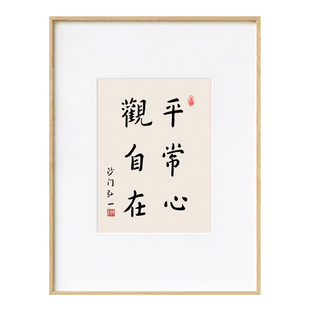 平常心
觀自在
沙门弘一